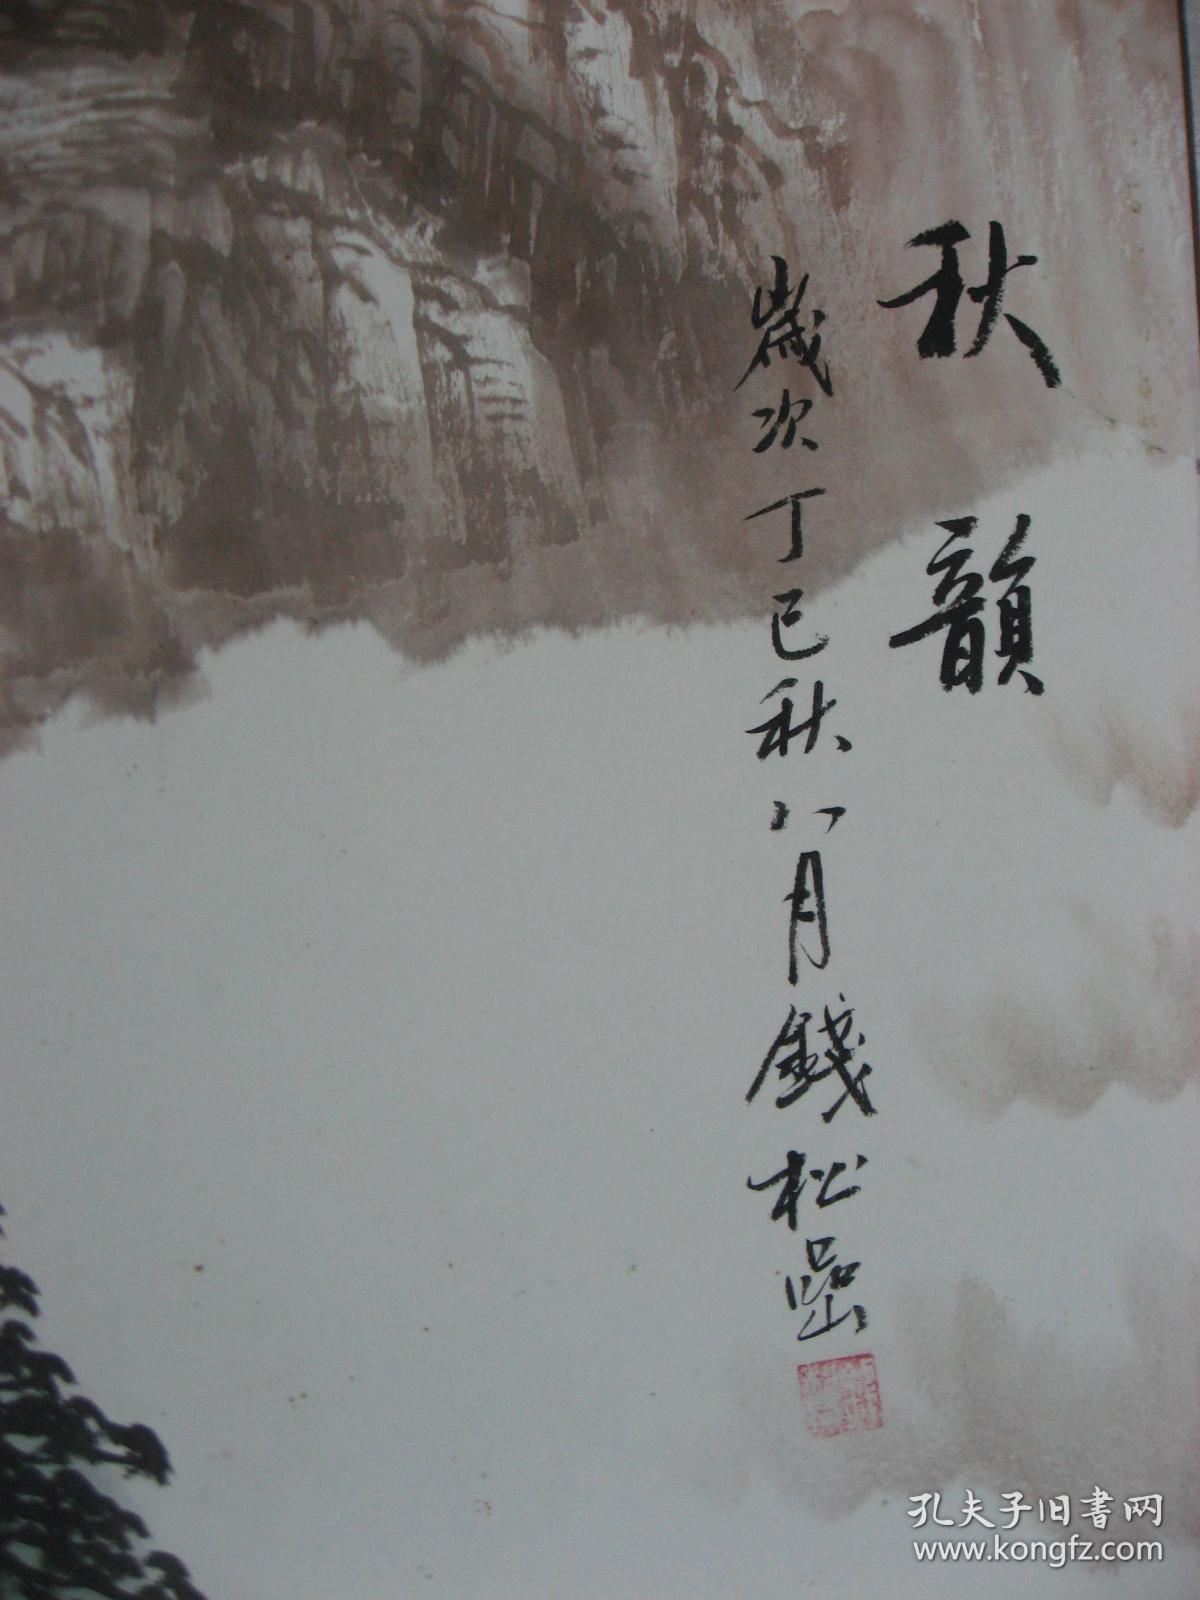 秋韻
歲次丁巳秋八月錢松嵒
孔夫子旧書网
www.kongfz.com